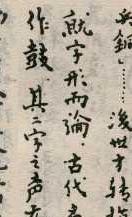 兵銅」……後世才轉
就字形而論，古代
作鼓 其二字之声